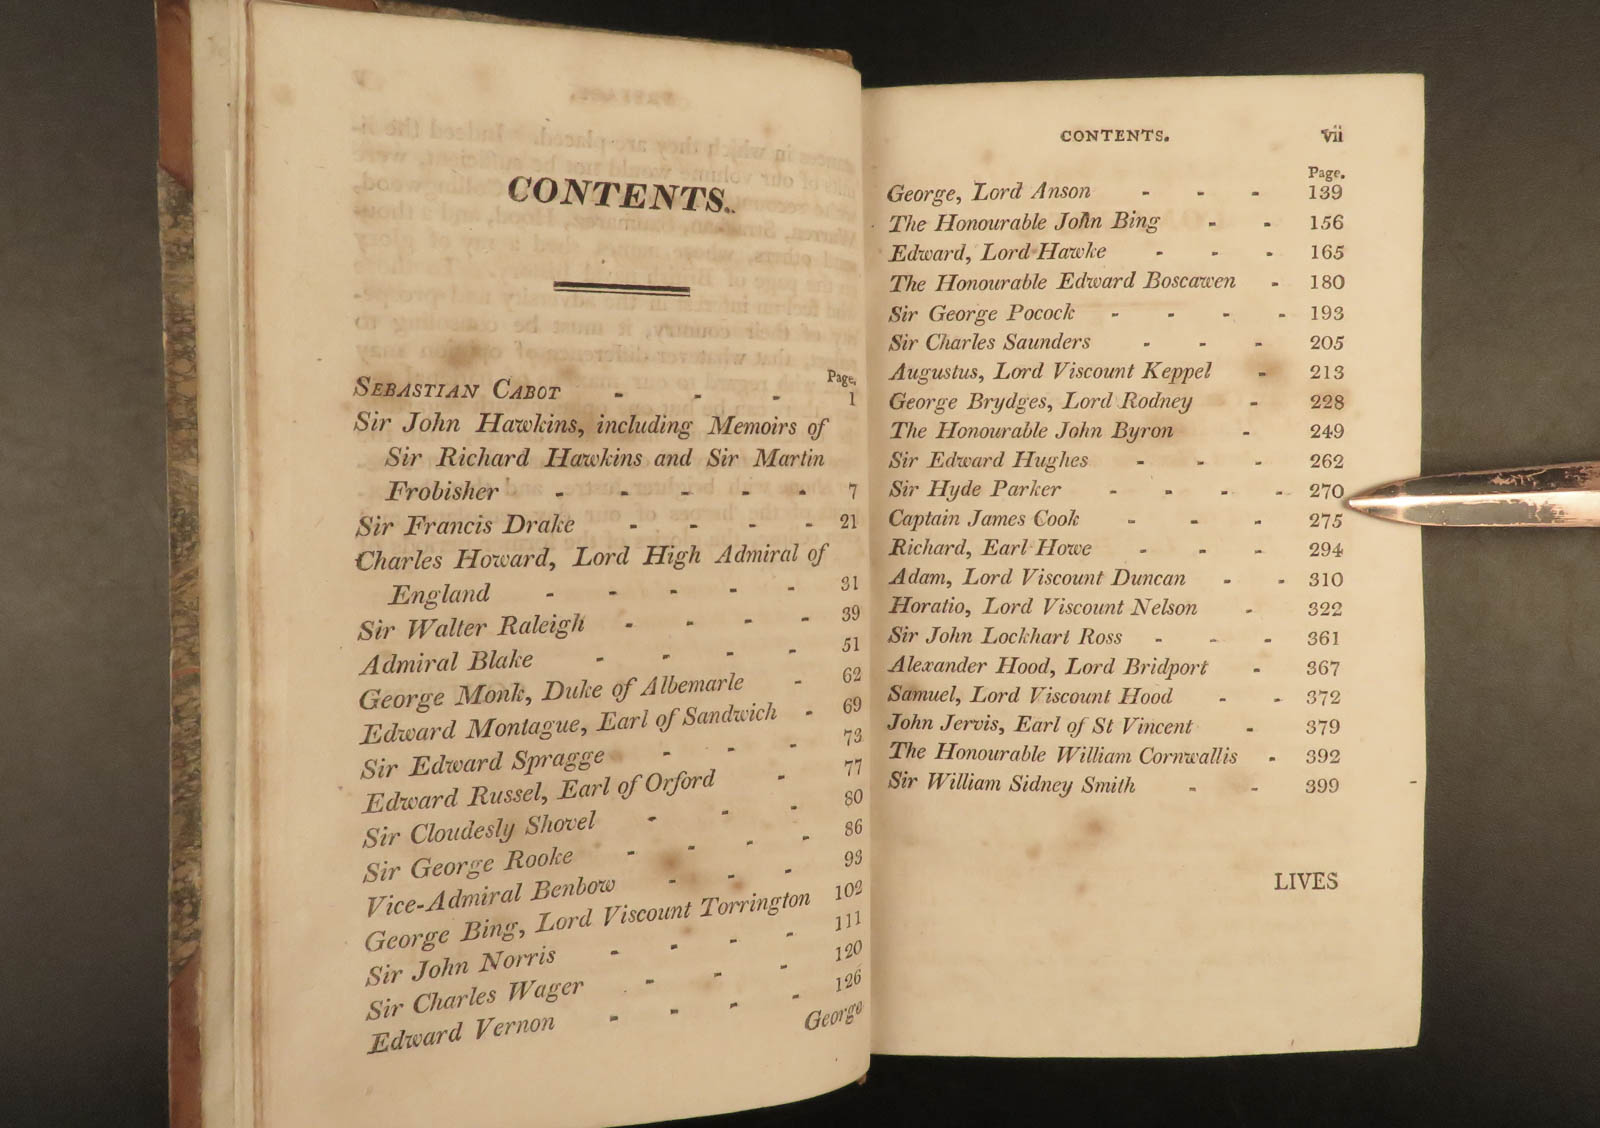 CONTENTS.
Page.
SEBASTIAN CABOT - - - 1
Sir John Hawkins, including Memoirs of
Sir Richard Hawkins and Sir Martin
Frobisher - - - - - 7
Sir Francis Drake - - - - 21
Charles Howard, Lord High Admiral of
England - - - - - 31
Sir Walter Raleigh - - - - 39
Admiral Blake - - - - 51
George Monk, Duke of Albemarle - 62
Edward Montague, Earl of Sandwich - 69
Sir Edward Spragge - - - 73
Edward Russel, Earl of Orford - 77
Sir Cloudesly Shovel - - - 80
Sir George Rooke - - - - 86
Vice-Admiral Benbow - - - 93
George Bing, Lord Viscount Torrington 102
Sir John Norris - - - - 111
Sir Charles Wager - - - 120
Edward Vernon - - - - 126
George
CONTENTS. vii
Page.
George, Lord Anson - - - 139
The Honourable John Bing - - 156
Edward, Lord Hawke - - - 165
The Honourable Edward Boscawen - 180
Sir George Pocock - - - - 193
Sir Charles Saunders - - - 205
Augustus, Lord Viscount Keppel - 213
George Brydges, Lord Rodney - 228
The Honourable John Byron - 249
Sir Edward Hughes - - - 262
Sir Hyde Parker - - - - 270
Captain James Cook - - - 275
Richard, Earl Howe - - - 294
Adam, Lord Viscount Duncan - - 310
Horatio, Lord Viscount Nelson - 322
Sir John Lockhart Ross - - - 361
Alexander Hood, Lord Bridport - 367
Samuel, Lord Viscount Hood - - 372
John Jervis, Earl of St Vincent - 379
The Honourable William Cornwallis - 392
Sir William Sidney Smith - - 399
LIVES